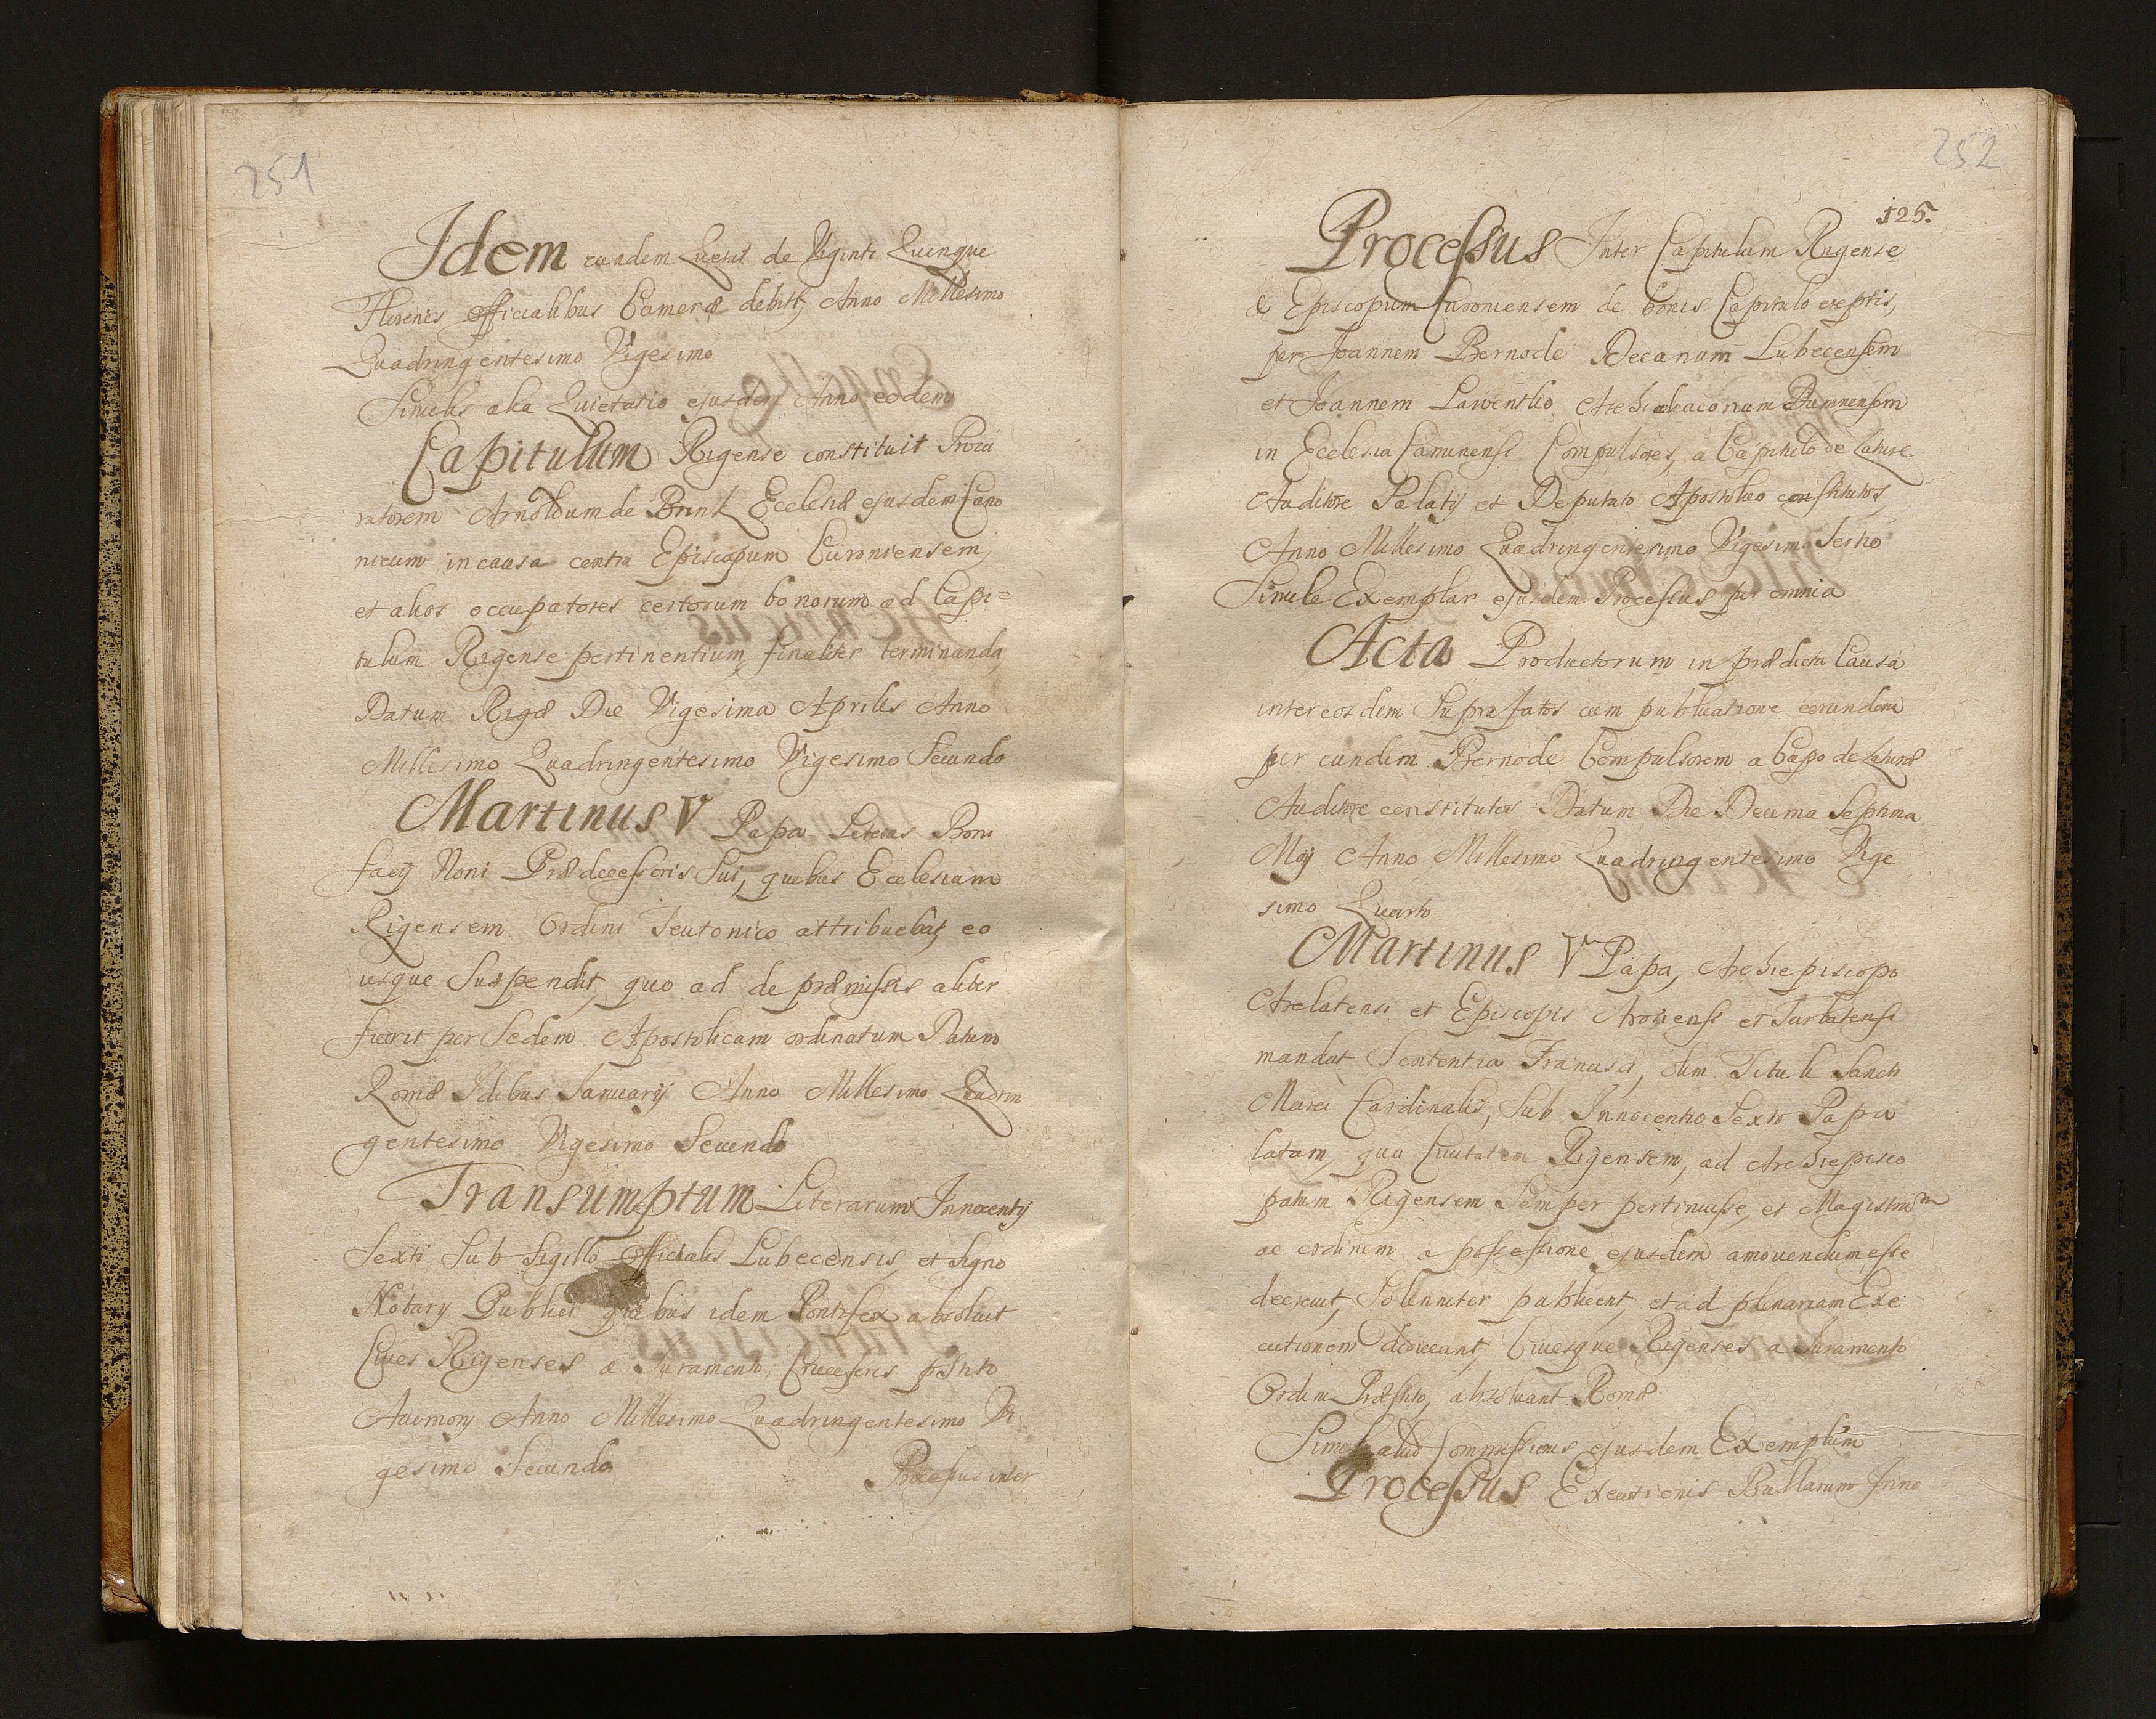 251
Idem eundem Quetat de Viginti Quinque
Florenis officialibus Cameræ debitis, Anno Millesimo
Quadringentesimo Vigesimo
Similis alia Quietatio ejusdem Anno eodem
Capitulum Rigense constituit Procu
ratorem Arnoldum de Brink Ecclesiæ ejusdem Cano
nicum in causa contra Episcopum Curoniensem,
et alios occupatores certorum bonorum ad Capi=
tulum Rigense pertinentium, finaliter terminanda,
Datum Rigæ Die Vigesima Aprilis Anno
Millesimo Quadringentesimo Vigesimo Secundo
Martinus V Papa Literas Boni
facij Noni Prædecessoris Sui, quibus Ecclesiam
Rigensem Ordini Teutonico attribuebat, eo
usque Suspendit, quo ad de præmissis aliter
fuerit per Sedem Apostolicam ordinatum Datum
Romæ Idibus Januarij Anno Millesimo Quadrin
gentesimo Vigesimo Secundo
Transumptum Literarum Innocentij
Sexti Sub Sigillo officialis Lubecensis, et Signo
Notarij Publici quibus idem Pontifex absoluit
Ciues Rigenses a Juramento, Cruciferis pstito
Auenion Anno Millesimo Quadringentesimo Vi
gesimo Secundo
Processus inter
252
125.
Processus Inter Capitulum Rigense
& Episcopum Curoniensem de bonis Capitulo ereptis,
per Joannem Bernode Decanum Lubecensem
et Joannem Lawentlio Archidiaconum
in Ecclesia Caminensi Compulsores, a Capitulo de
Auditore Palatij et Deputato Apostolico constitutos,
Anno Millesimo Quadringentesimo Vigesimo
Simile Exemplar ejusdem Processus per omnia
Acta Productorum in prædicta Causa
inter eosdem Suprafatos cum publicatione eorundem
per eundem Bernode Compulsorem a Capo de
Auditore constitutos Datum Die Decima Septima
Maij Anno Millesimo Quadringentesimo Vige
simo Quarto
Martinus V Papa, Archiepiscopo
Arelatensi et Episcopis et
mandat Sententia Francisci, olim Tituli Sancti
Marci Cardinalis, Sub Innocentio Sexto Papa
latam, qua Ciuitatem Rigensem, ad Archiepisco
patum Rigensem Semper pertinuisse, et Magistrum
ac ordinem a possessione ejusdem amouendum esse
decreuit, Solenniter publicent, et ad plenariam Exe
cutionem deducant, Ciuesque Rigenses a Juramento
Ordini Præstito, absoluant Romæ
Simile aliud Commissionis ejusdem Exemplum
Processus Executionis Bullarum Inno